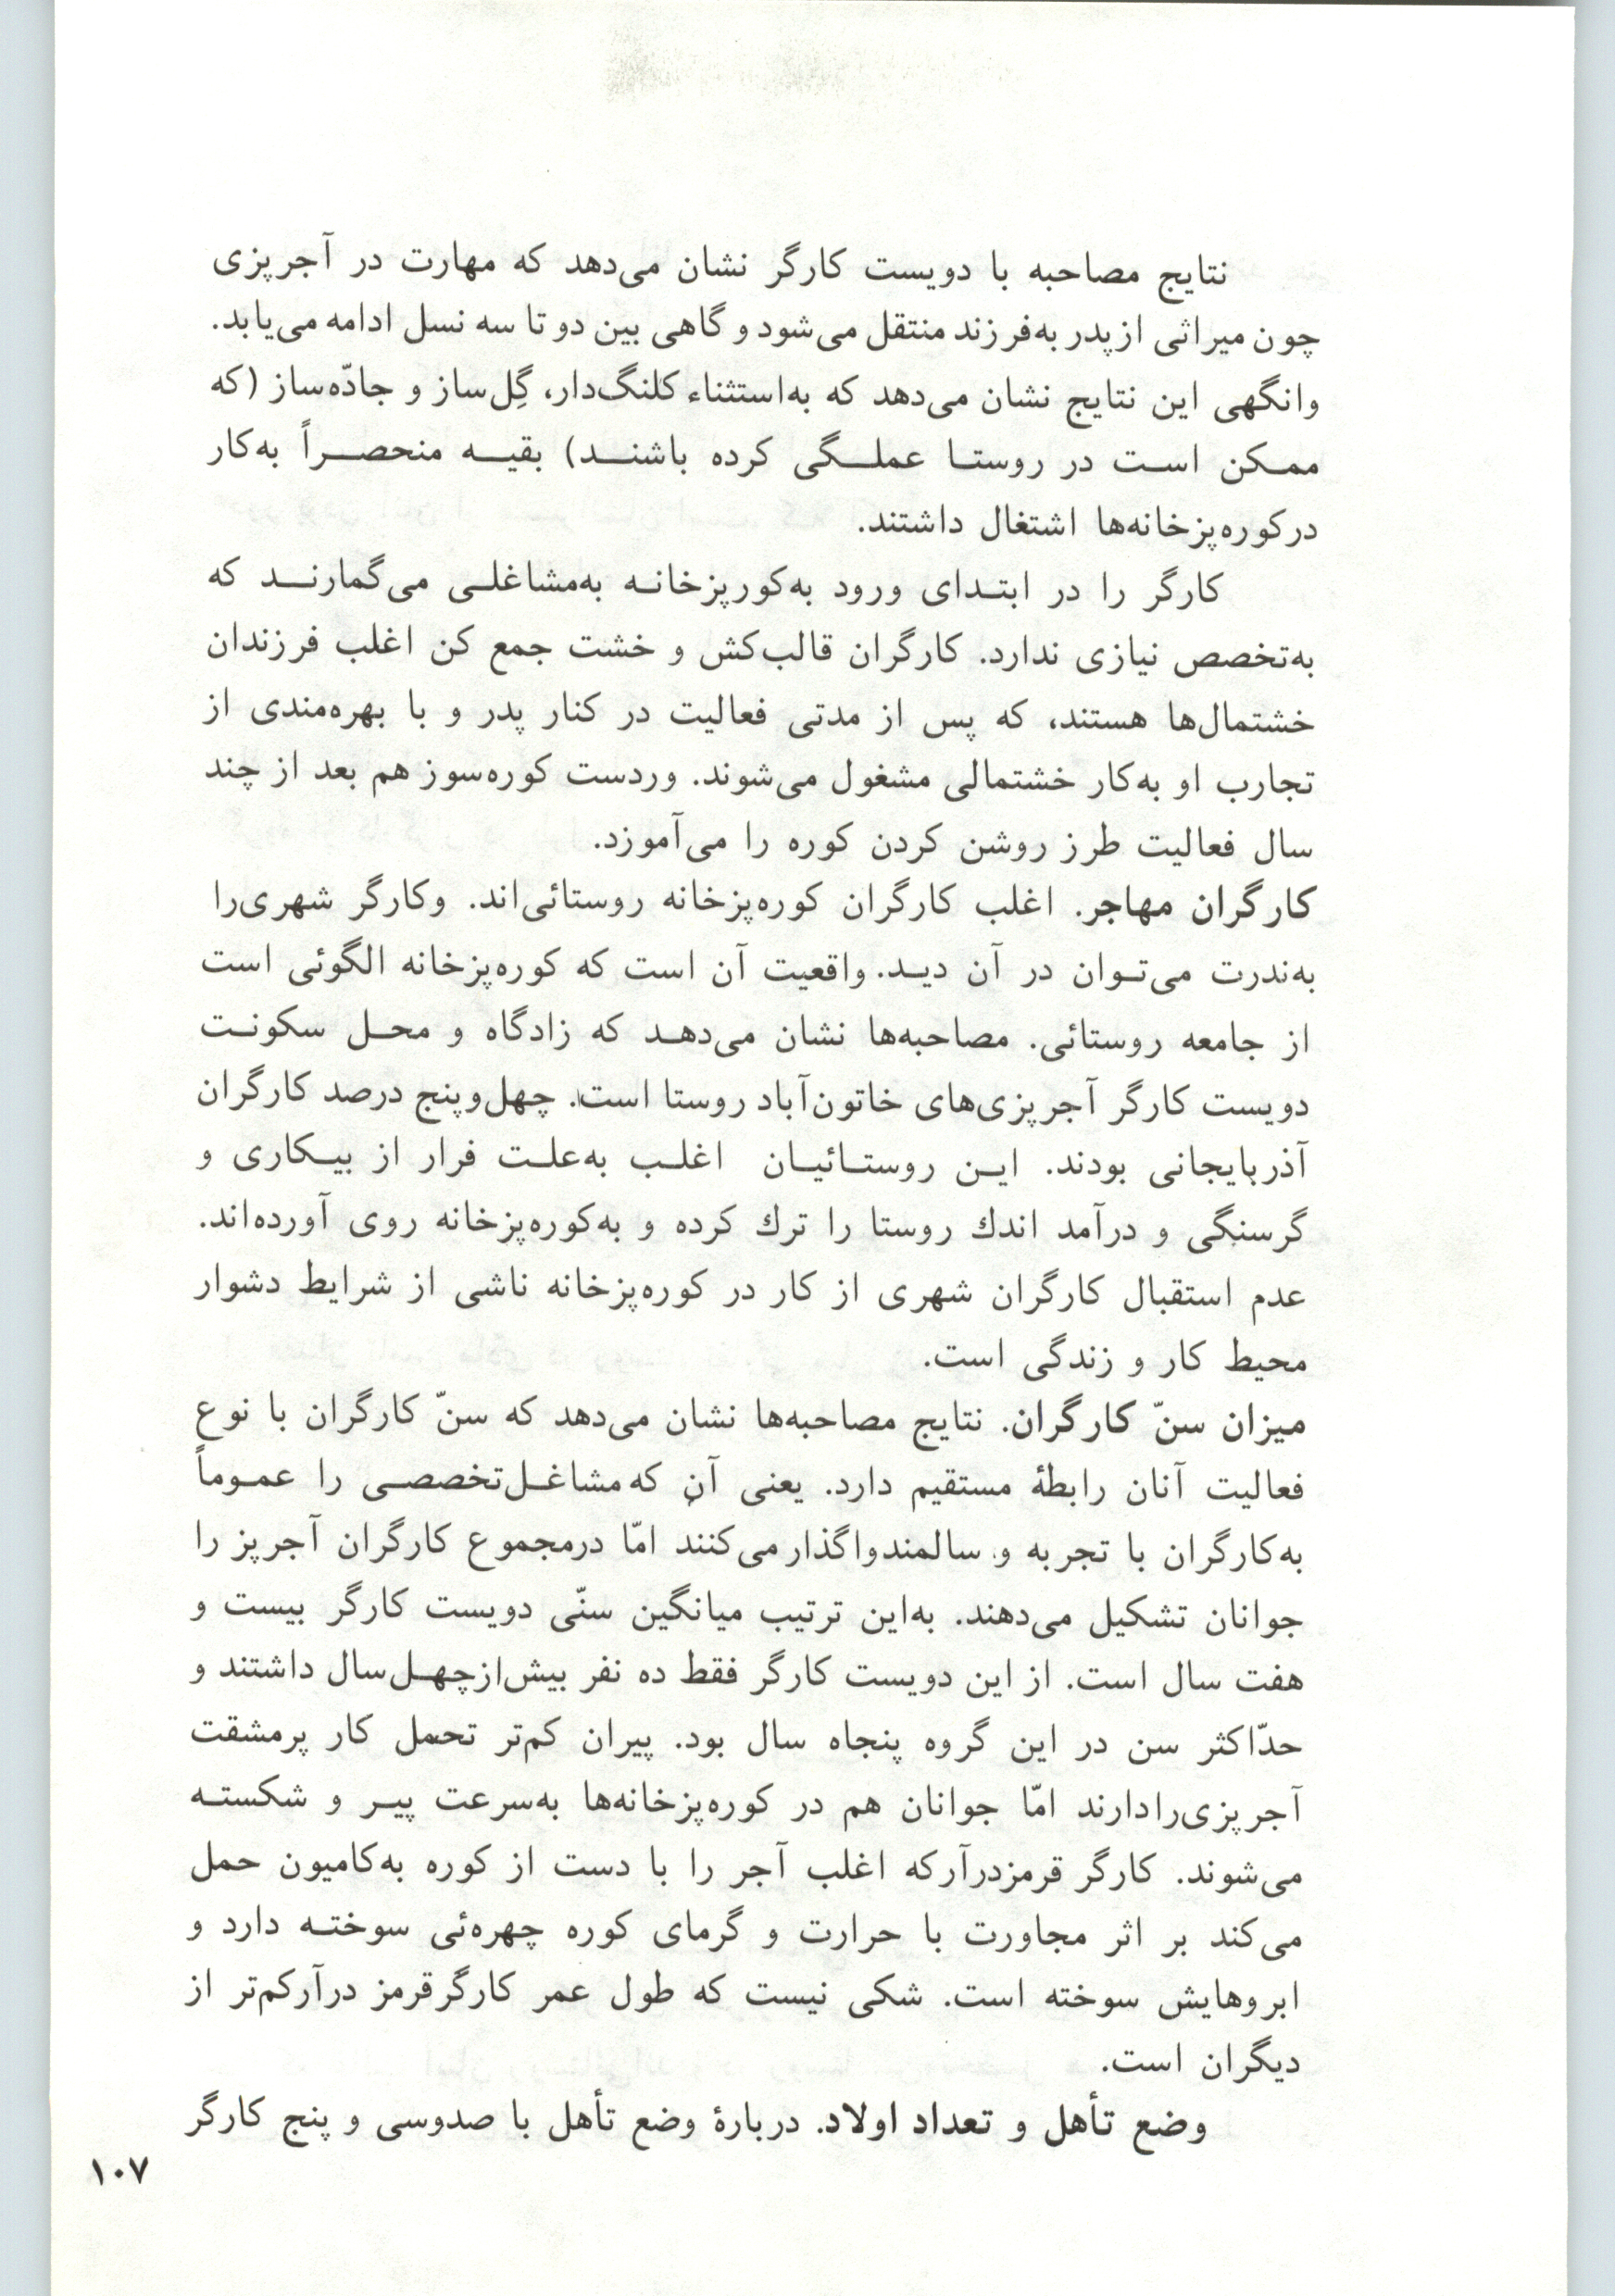 نتایج مصاحبه با دویست کارگر نشان می‌دهد که مهارت در آجرپزی
چون میراثی از پدر به‌فرزند منتقل می‌شود و گاهی بین دو تا سه نسل ادامه می‌یابد.
وانگهی این نتایج نشان می‌دهد که به‌استثناء کلنگ‌دار، گِل‌ساز و جادّه‌ساز (که
ممکن است در روستا عملگی کرده باشند) بقیه منحصراً به‌کار
درکوره‌پزخانه‌ها اشتغال داشتند.
کارگر را در ابتدای ورود به‌کورپزخانه به‌مشاغلی می‌گمارند که
به‌تخصص نیازی ندارد. کارگران قالب‌کش و خشت جمع کن اغلب فرزندان
خشتمال‌ها هستند، که پس از مدتی فعالیت در کنار پدر و با بهره‌مندی از
تجارب او به‌کار خشتمالی مشغول می‌شوند. وردست کوره‌سوز هم بعد از چند
سال فعالیت طرز روشن کردن کوره را می‌آموزد.
کارگران مهاجر. اغلب کارگران کوره‌پزخانه روستائی‌اند. وکارگر شهری‌را
به‌ندرت می‌توان در آن دید. واقعیت آن است که کوره‌پزخانه الگوئی است
از جامعه روستائی. مصاحبه‌ها نشان می‌دهد که زادگاه و محل سکونت
دویست کارگر آجرپزی‌های خاتون‌آباد روستا است. چهل‌وپنج درصد کارگران
آذربایجانی بودند. این روستائیان اغلب به‌علت فرار از بیکاری و
گرسنگی و درآمد اندك روستا را ترك کرده و به‌کوره‌پزخانه روی آورده‌اند.
عدم استقبال کارگران شهری از کار در کوره‌پزخانه ناشی از شرایط دشوار
محیط کار و زندگی است.
میزان سنّ کارگران. نتایج مصاحبه‌ها نشان می‌دهد که سنّ کارگران با نوع
فعالیت آنان رابطهٔ مستقیم دارد. یعنی آن که مشاغل‌تخصصی را عموماً
به‌کارگران با تجربه و سالمندواگذار می‌کنند امّا درمجموع کارگران آجرپز را
جوانان تشکیل می‌دهند. به‌این ترتیب میانگین سنّی دویست کارگر بیست و
هفت سال است. از این دویست کارگر فقط ده نفر بیش‌از چهل‌سال داشتند و
حدّاکثر سن در این گروه پنجاه سال بود. پیران کم‌تر تحمل کار پرمشقت
آجرپزی‌رادارند امّا جوانان هم در کوره‌پزخانه‌ها به‌سرعت پیر و شکسته
می‌شوند. کارگر قرمزدرآرکه اغلب آجر را با دست از کوره به‌کامیون حمل
می‌کند بر اثر مجاورت با حرارت و گرمای کوره چهره‌ئی سوخته دارد و
ابروهایش سوخته است. شکی نیست که طول عمر کارگرقرمز درآرکم‌تر از
دیگران است.
وضع تأهل و تعداد اولاد. دربارهٔ وضع تأهل با صدوسی و پنج کارگر
۱۰۷